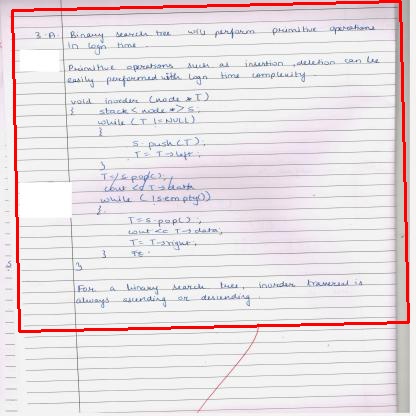 3.A. Binary search tree will perform primitive operations
in logn time.
Primitive operations such as insertion, deletion can be
easily performed with logn time complexity.
void inorder (node *T)
{ stack < node *> s;
while (T !=NULL)
{
s.push(T);
T = T→left;
}
T=s.pop();
cout << T→data
while (!s.empty())
{
T=s.pop();
cout << T→data;
T= T→right;
}
}
For a binary search tree, inorder traversal is
always ascending or descending.